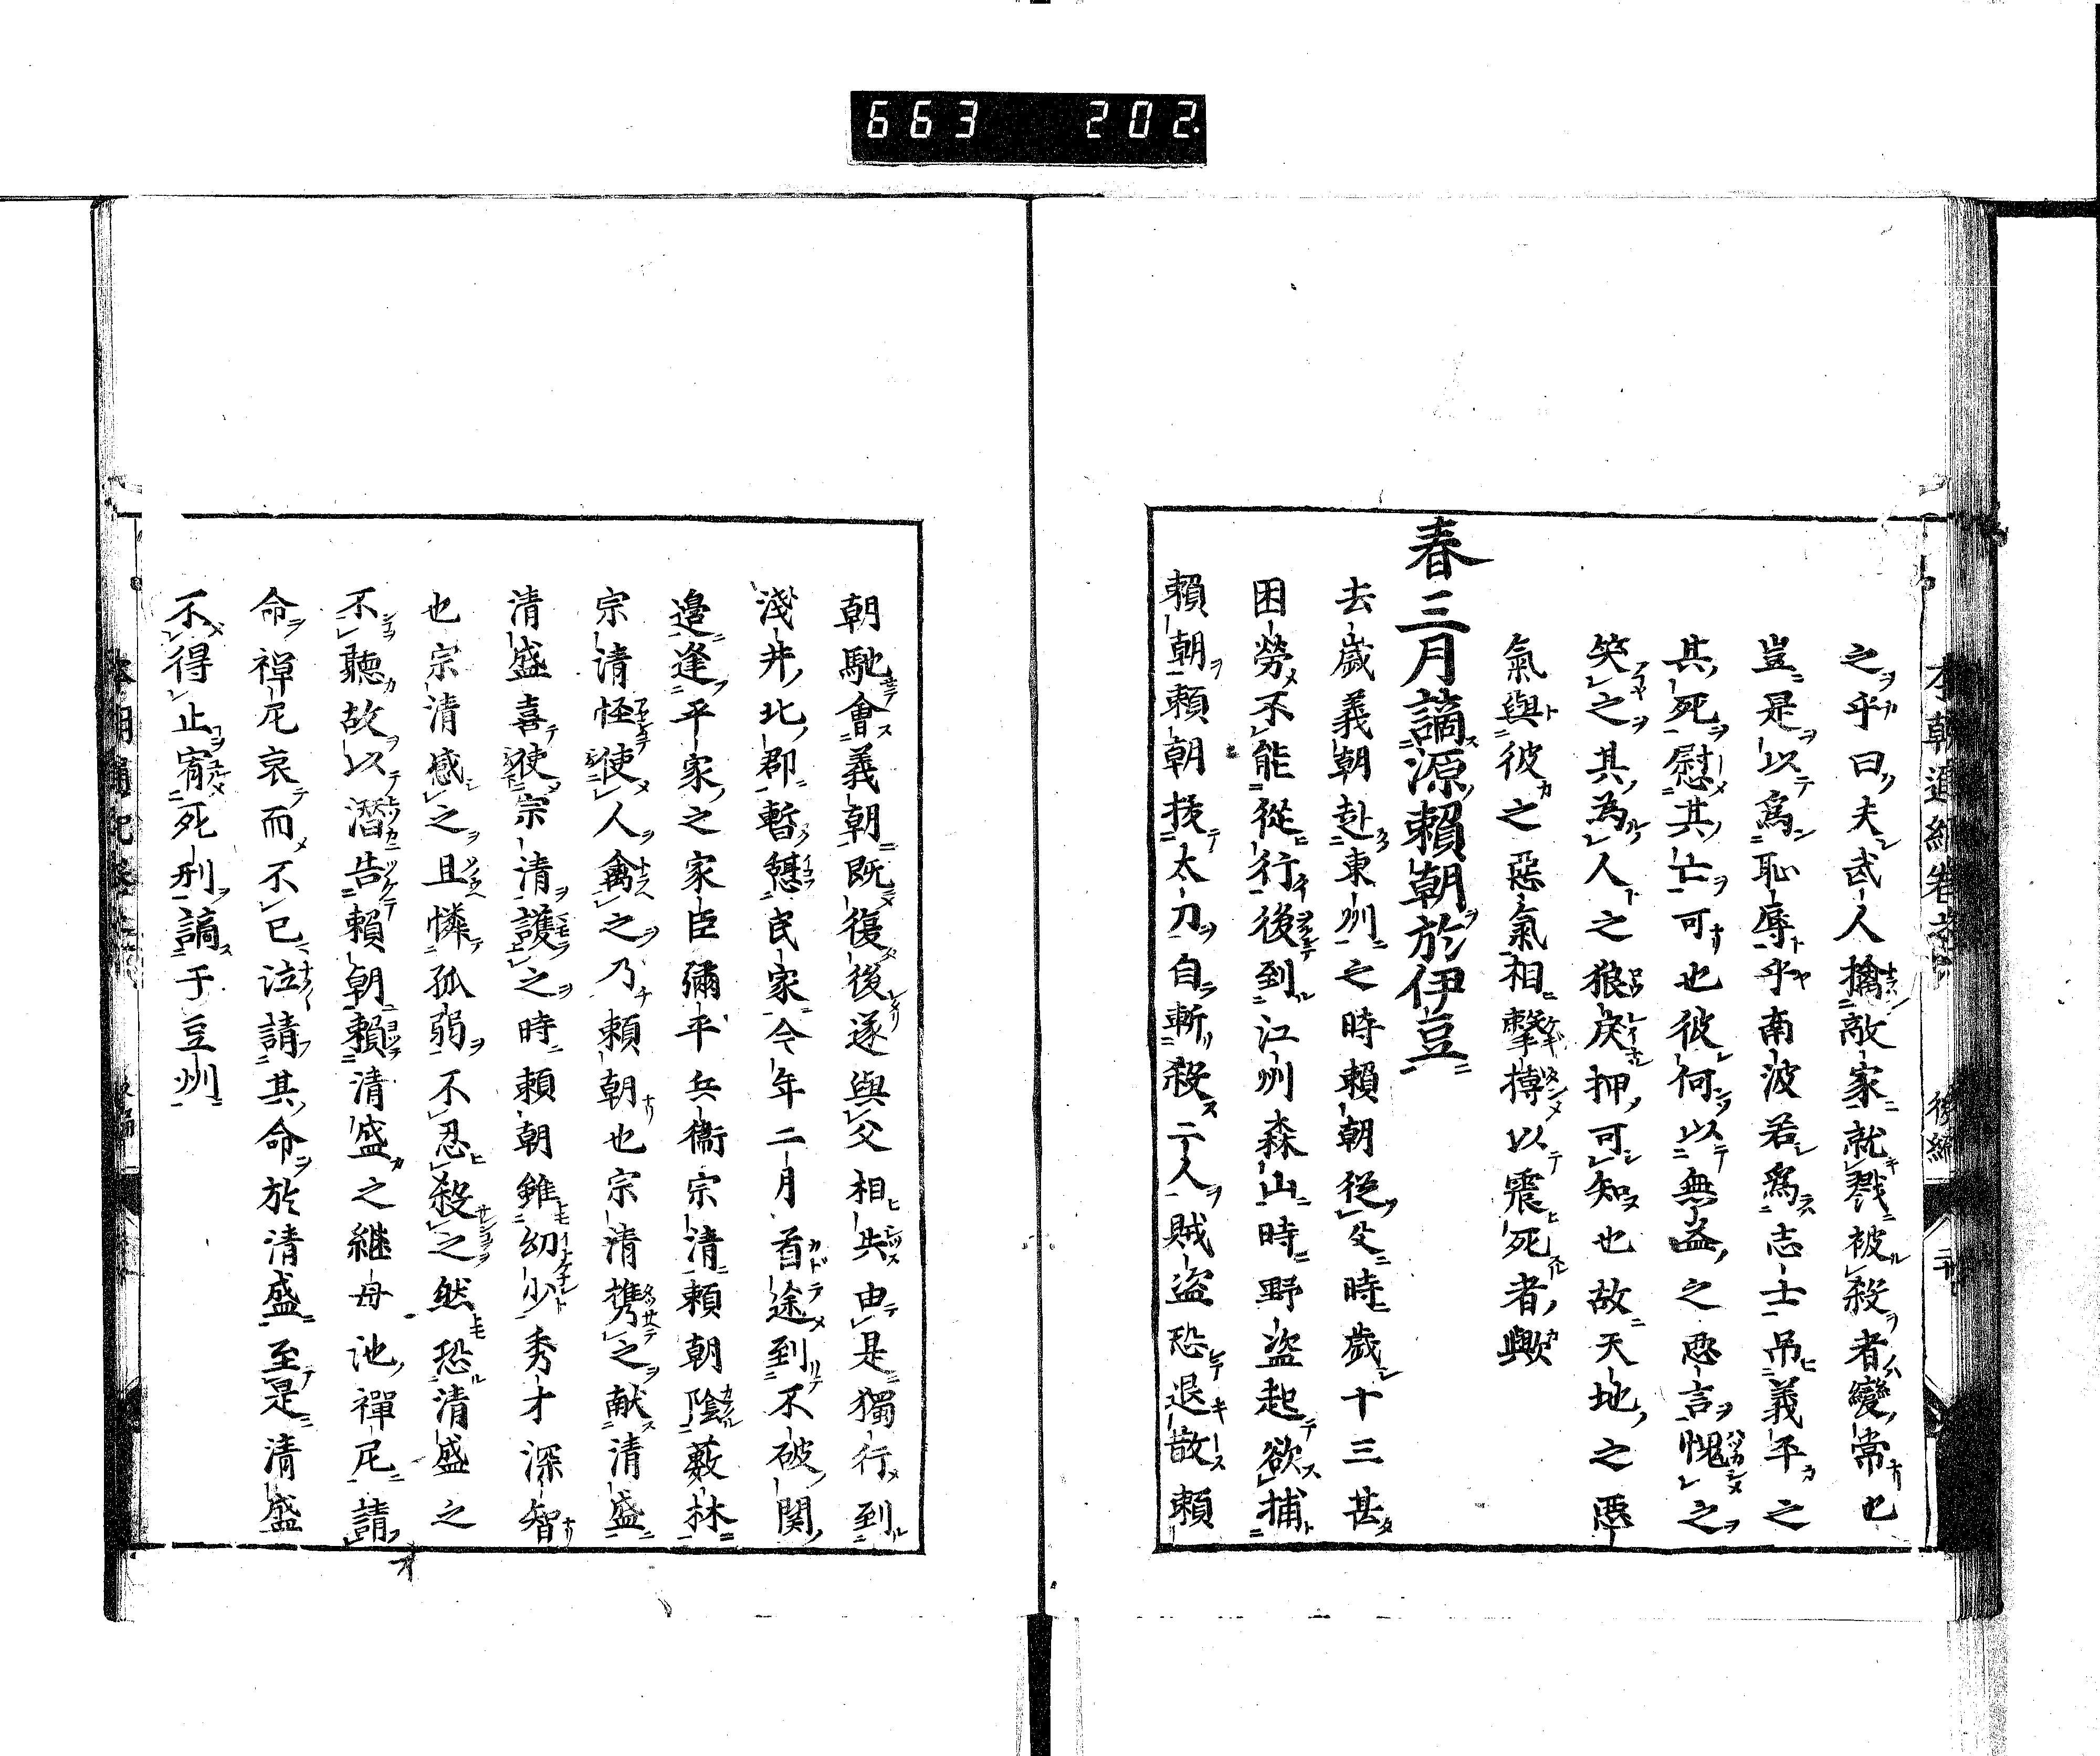 663 202.
本朝通紀卷之 後編
之乎曰夫武人擒敵家就戮被殺者變常也
豈是以爲恥辱乎南波若爲志士吊義平之
其死慰其亡可也彼何以無益之惡言愧之
笑之其為人之狼戻押可知也故天地之惡
氣與彼之惡氣相擊搏以震死者歟
春三月謫源賴朝於伊豆
去歲義朝赴東州之時賴朝從父時歲十三甚
困勞不能從行後到江州森山時野盜起欲捕
賴朝賴朝拔太刀自斬殺二人賊盜恐退散賴
朝馳會義朝既復後遂與父相失由是獨行到
淺井北郡暫憩民家今年二月首途到不破関
邊逢平家之家臣彌平兵衞宗清賴朝陰藪林
宗清怪使人禽之乃賴朝也宗清携之献清盛
清盛喜使宗清護之時賴朝雖幼少秀才深智
也宗清感之且憐孤弱不忍殺之然恐清盛之
不聽故以潛告賴朝賴清盛之継母池禪尼請
命禪尼哀而不已泣請其命於清盛至是清盛
不得止宥死刑謫于豆州